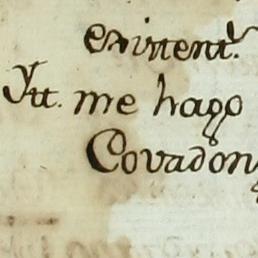 existent.ᵉ
Ytt. me hago
Covadon